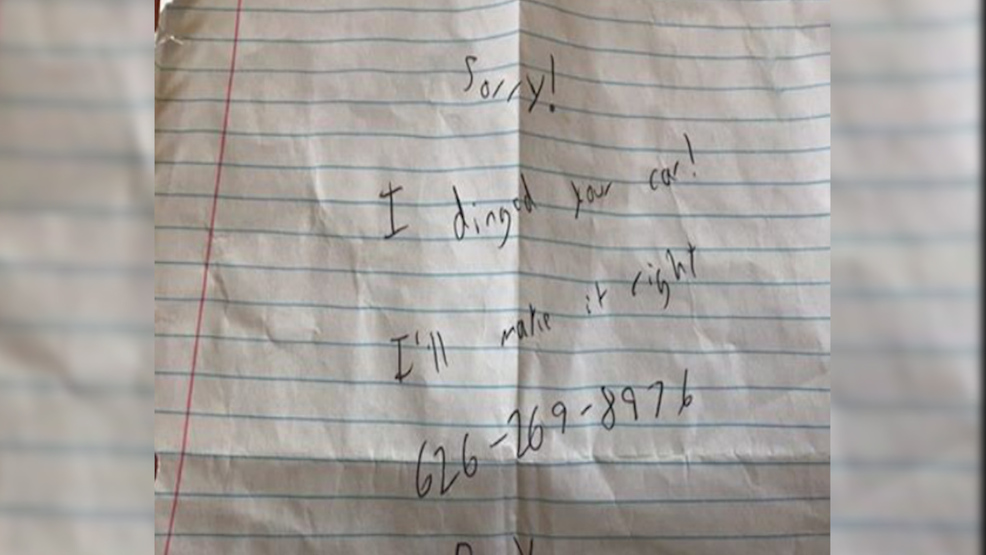 Sorry!
I dinged your car!
I'll make it right
626-269-8976